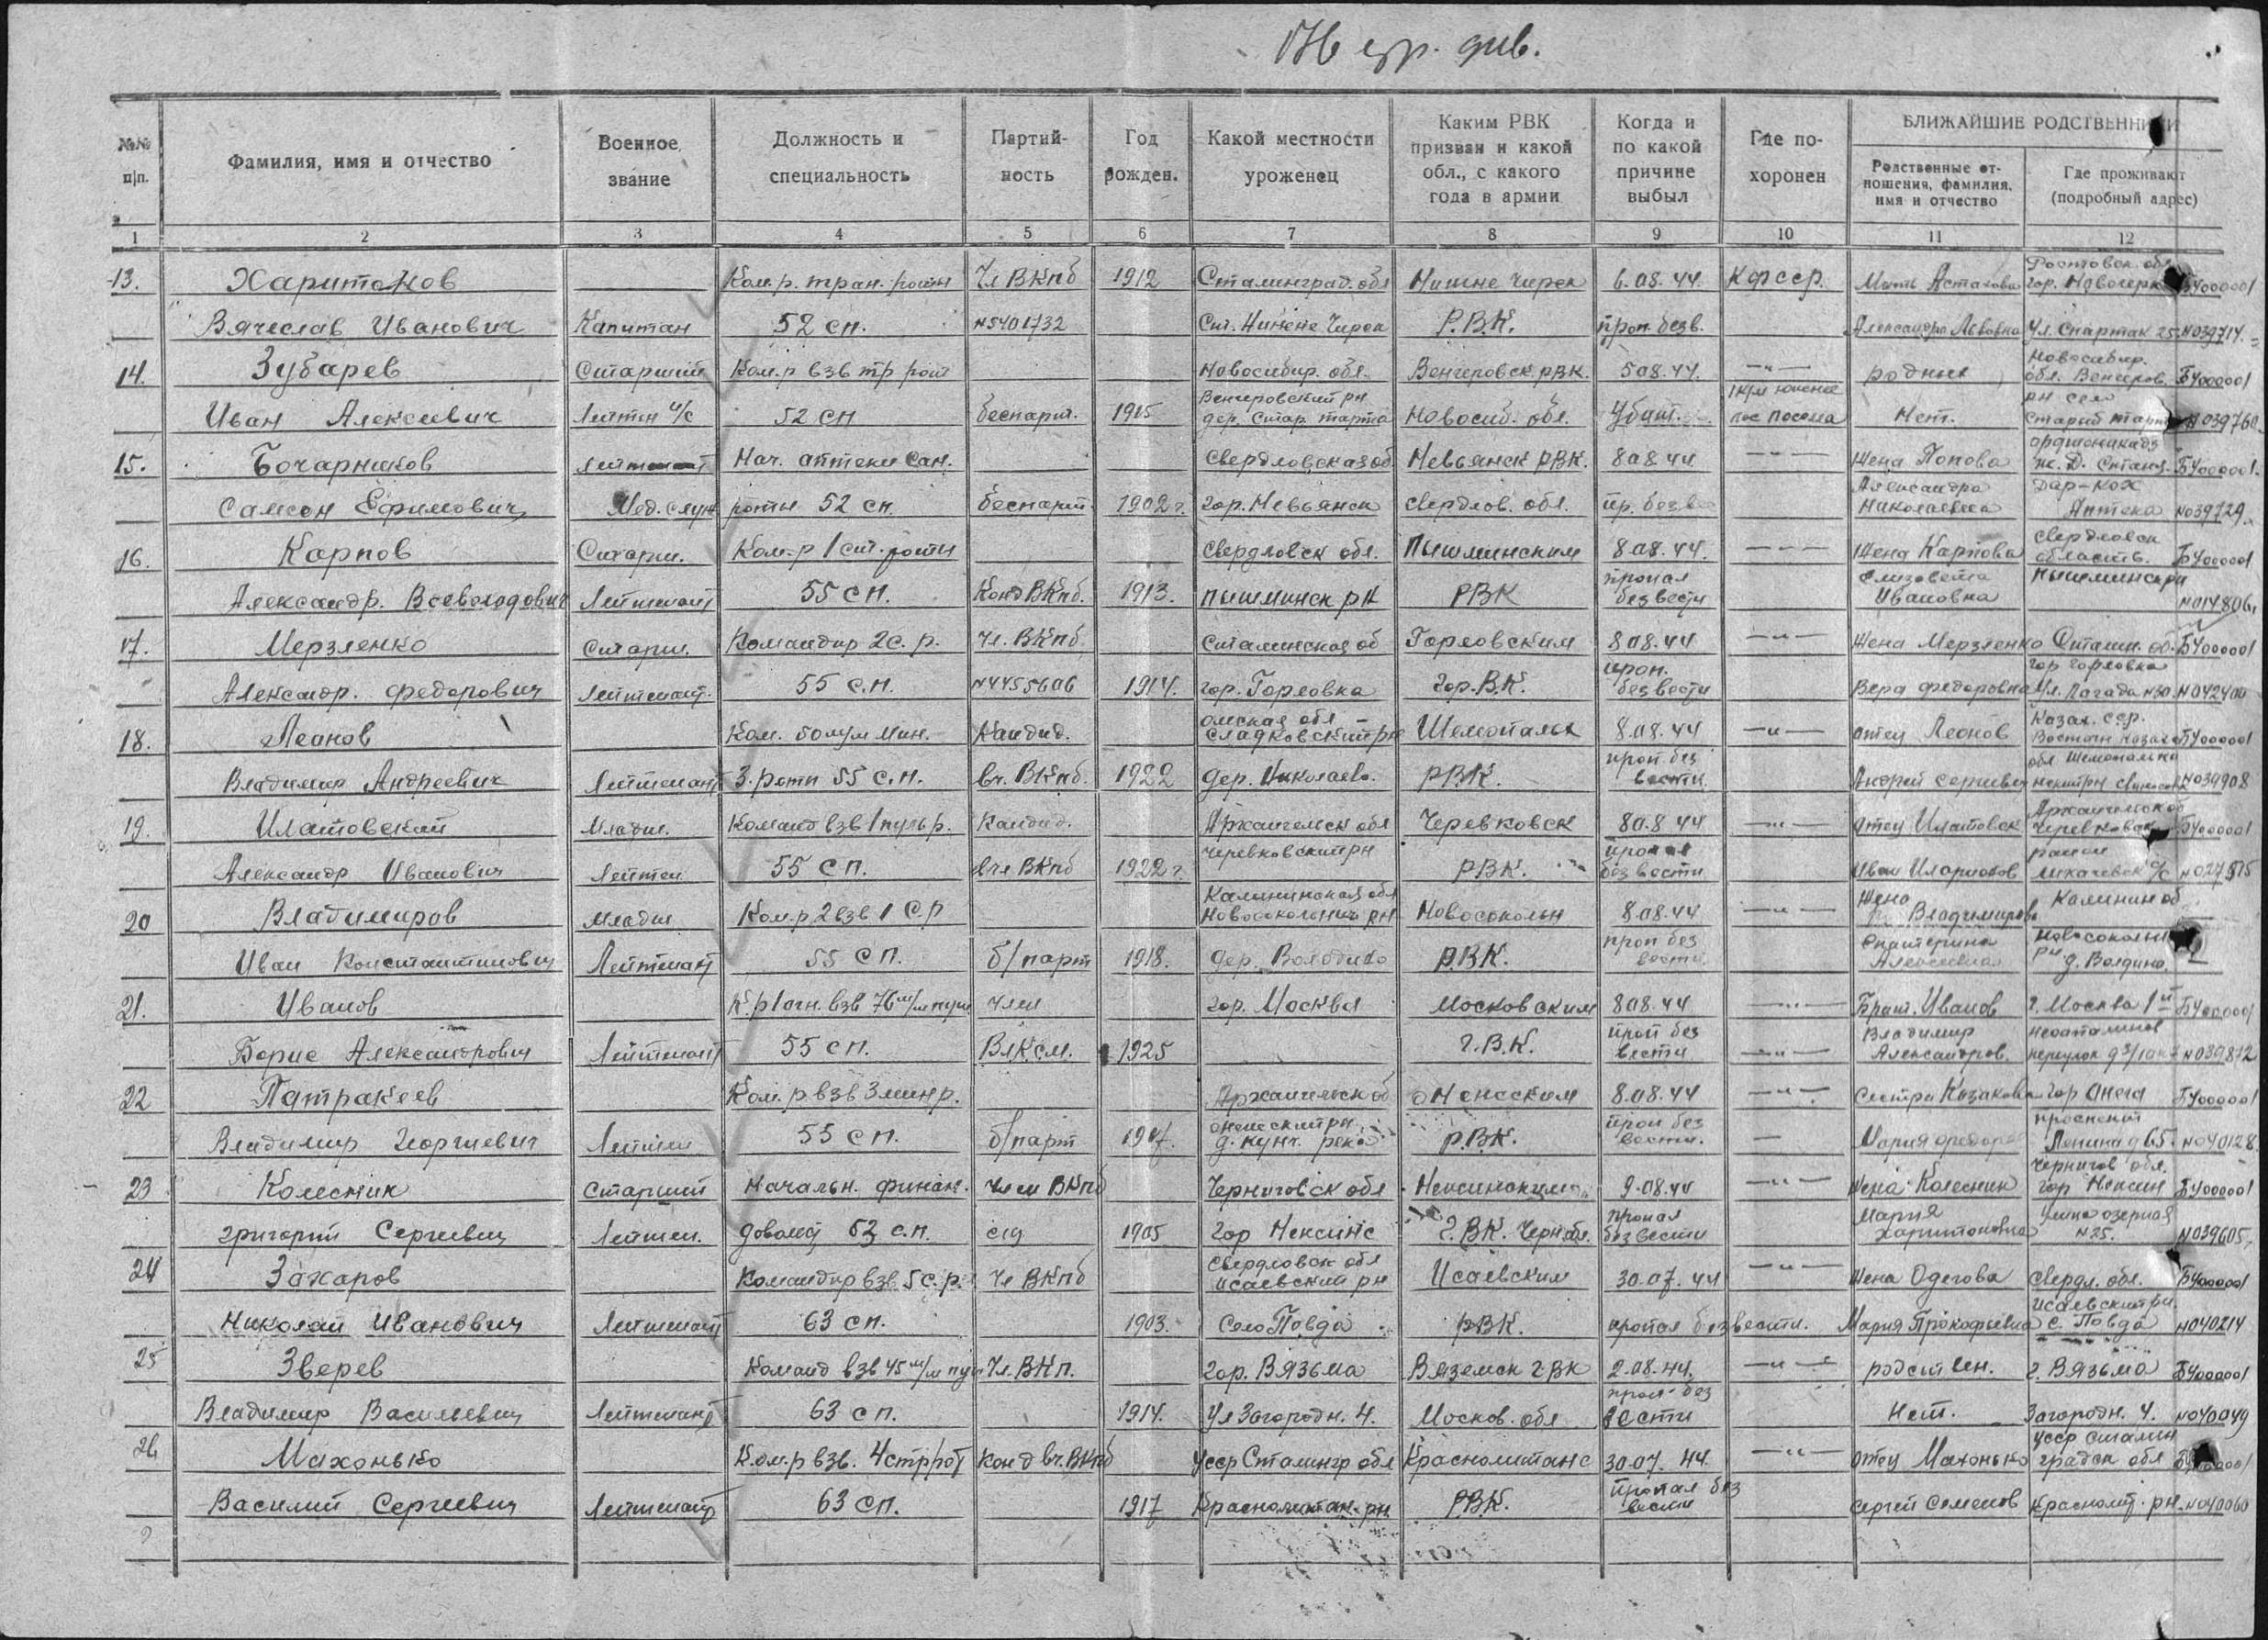 176 стр. див.
№№ п/п. | Фамилия, имя и отчество | Военное звание | Должность и специальность | Партий-ность | Год рожден. | Какой местности уроженец | Каким РВК призван и какой обл., с какого года в армии | Когда и по какой причине выбыл | Где по-хоронен | БЛИЖАЙШИЕ РОДСТВЕННИКИ
Родственные от-ношения, фамилия, имя и отчество | Где проживают (подробный адрес)
1 2 3 4 5 6 7 8 9 10 11 12
13. Харитонов Ком.р. тран. роты Чл ВКпб 1912 Сталинград. обл Нижне Чирск 6.08.44. Кфсср. Мать Астахова Ростовск. обл гор. Новочерк Б400001
Вячеслав Иванович Капитан 52 сп. N5401732 Ст. Нижне Чирск Р.В.К. проп. безв. Александра Львовна Ул. Спартак 25. N039714.
14. Зубарев Старший Ком.р взв тр рот Новосибир. обл. Венгеровск РВК. 5 08.44. —"— родных Новосибир. обл. Венгеров. Б400001
Иван Алексеевич Лейтен и/с 52 сп беспарт. 1915 Венгеровский рн дер. Стар. тарта Новосиб. обл. Убит. 1км южнее Нет. рн село Старый тарт N039760
15. Бочарников лейтенант Нач. аптеки Сан. Свердловская об Невьянск РВК. 8 08 44 —"— жена Попова орджоникидз ж.д. Станц. Б400001.
Самсон Ефимович Мед. служ роты 52 сп. беспарт. 1902 г. гор. Невьянск Свердлов. обл. пр. без ве Александра Николаевна Дар-Кох Аптека N039729
16. Карпов Старш. Ком-р 1 ст. роты Свердловск обл. Пышминским 8 08.44. —"— жена Карпова Свердловск область. Б400001
Александр. Всеволодович Лейтенант 55 сп. Канд ВКпб. 1913. пышминск рн РВК пропал без вести Елизовета Ивановна Пышминск рн N014806
17. Мерзленко Старш. Командир 2 с. р. Чл. ВКпб. Сталинская об Горловским 8 08.44 —"— жена Мерзленко Сталин. об. Б400001
Александр. Федорович лейтенант. 55 с.п. N4455606 1914. гор. Горловка гор. В.К. проп. без вести Вера Федоровна гор Горловка Ул. N30. N042400
18. Леонов Ком. Мин. Кандид. омская обл Сладковский рн Шемонаих 8.08.44 —"— отец Леонов Казах. сср. Восточн Казах Б400001
Владимир Андреевич Лейтенант 3. роты 55 с.п. вч. ВКпб. 1922 дер. Николаево. РВК. проп без вести Андрей Сергеевич обл Шемонаиха N039908
19. Илатовский Младш. Команд взв 1 пуль р. Кандид. Архангельск обл Черевковск 8 0.8 44 —"— отец Илатовск Архангельск об Черевковск Б400001
Александр Иванович Лейтен. 55 сп. вчл ВКпб 1922 г. Черевковский рн РВК. пропал без вести Иван Иларионов район с/с N027515
20 Владимиров Младш Ком.р 2 взв 1 с.р Калининская обл Новосокольнич рн Новосокольн 8 08.44 —"— Жена Владимирова Калинин об
Иван Константинович Лейтенант 55 сп. б/парт 1918. дер. Володино Р.ВК. проп без вести Екатерина Алексеевна Новосокольн рн д. Волдино.
21. Иванов К.р 1 огн. взв 76 м/м пуш член гор. Москва Московским 8 08.44 —"— Брат. Иванов г. Москва 1 й Б400001
Борис Александрович Лейтенант 55 сп. ВЛКсм. 1925 Г.В.К. проп без вести —"— Владимир Александров. неопалимов переулок N039872
22 Патракеев Ком.р взв 3 мин р. Архангельск об Онежским 8.08.44 —"— Сестра Казакова гор Онега Б400001
Владимир Георгиевич Лейтен 55 сп. б/парт онежский рн р.ВК. проп без вести. — Мария Федор проспект Ленина д 65. N040128.
23 Колесник Старший Начальн. финан. член ВКпб Черниговск обл Нежинским 9.08.44 —"— жена Колесник Чернигов обл. гор Нежин Б400001
Григорий Сергеевич Лейтен. довольс 52 с.п. 1905 гор Нежинс Г.ВК. Черн обл. пропал без вести Мария Харитоновна Улица озерная N 25. N039605
24 Захаров Командир взв. 5 с.р. Чл ВКпб Свердловск обл Исаевский рн Исаевским 30.07.44 —"— жена Одегова Свердл. обл. Б400001
Николай Иванович Лейтенант 63 сп. 1903. Село Повда РВК. пропал без вести. Мария Прокофьевна Исаевский рн. с. Повда N040214
25 Зверев Команд взв 45 м/м пуш Чл. ВКп. гор. Вязьма Вяземск Г ВК 2.08.44. —"— родствен. г. Вязьма Б400001
Владимир Васильевич Лейтенант 63 сп. 1914. Ул Загородн. 4. Москов. обл проп без вести Нет. Загородн. 4. N040049
26 Махонько Ком.р взв. 4 стр рот Канд вч. ВКпб Усср Сталингр обл Краснолиманс 30.07.44. —"— отец Махонько Усср Сталин градск обл
Василий Сергеевич Лейтенант 63 сп. 1917 Краснолиман. рн Р.ВК. пропал без вести Сергей Семенов Краснолим. рн. N040060